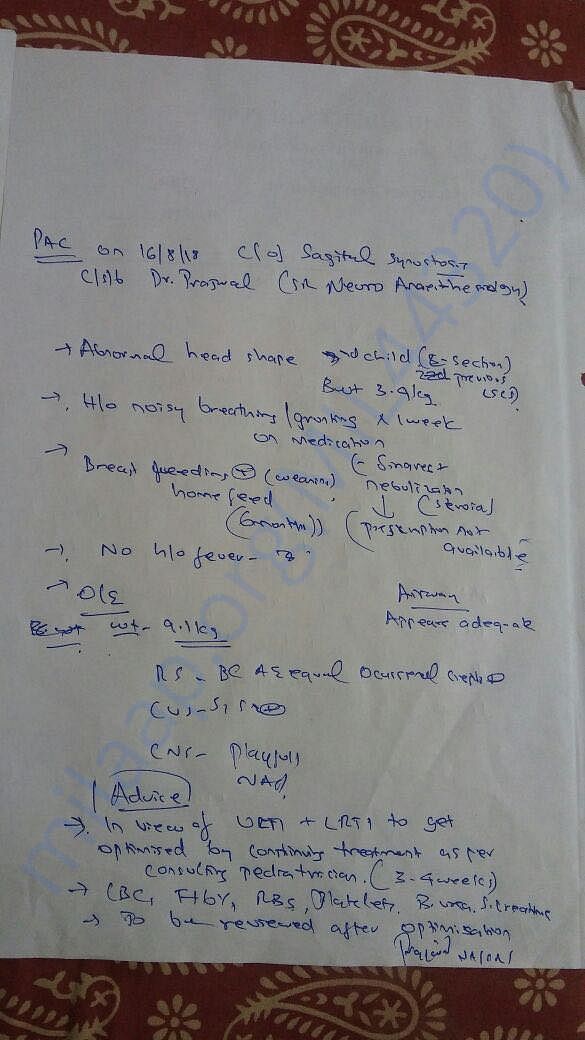 PAC on 16/8/18 C/O Sagital Synostosis
C/S/b Dr. Prajwal (SR Neuro Anaesthesiology)
→ Abnormal head shape 2nd child (C-section)
previous LSCS)
Bwt 3.9kg
→ H/o noisy breathing / grunting x 1 week
on medication
→ Breast feeding ⊕ (weaning)
home feed
(6 months)
nebulization
↓ (steroid)
(prescription not
available)
→ No h/o fever
→ O/E
wt - 9.1kg
Airway
Appears adequate
RS - BC AE equal Occasional crepts ⊕
CVS - S1 S2 ⊕
CNS - Playfull
NAD
Advice
→ In view of URTI + LRTI to get
optimised by continuing treatment as per
consulting pediatrician. (3-4 weeks)
→ CBC, Hb%, RBS, Platelets, B. urea, S. creatinine
→ To be reviewed after optimisation
milaap.org